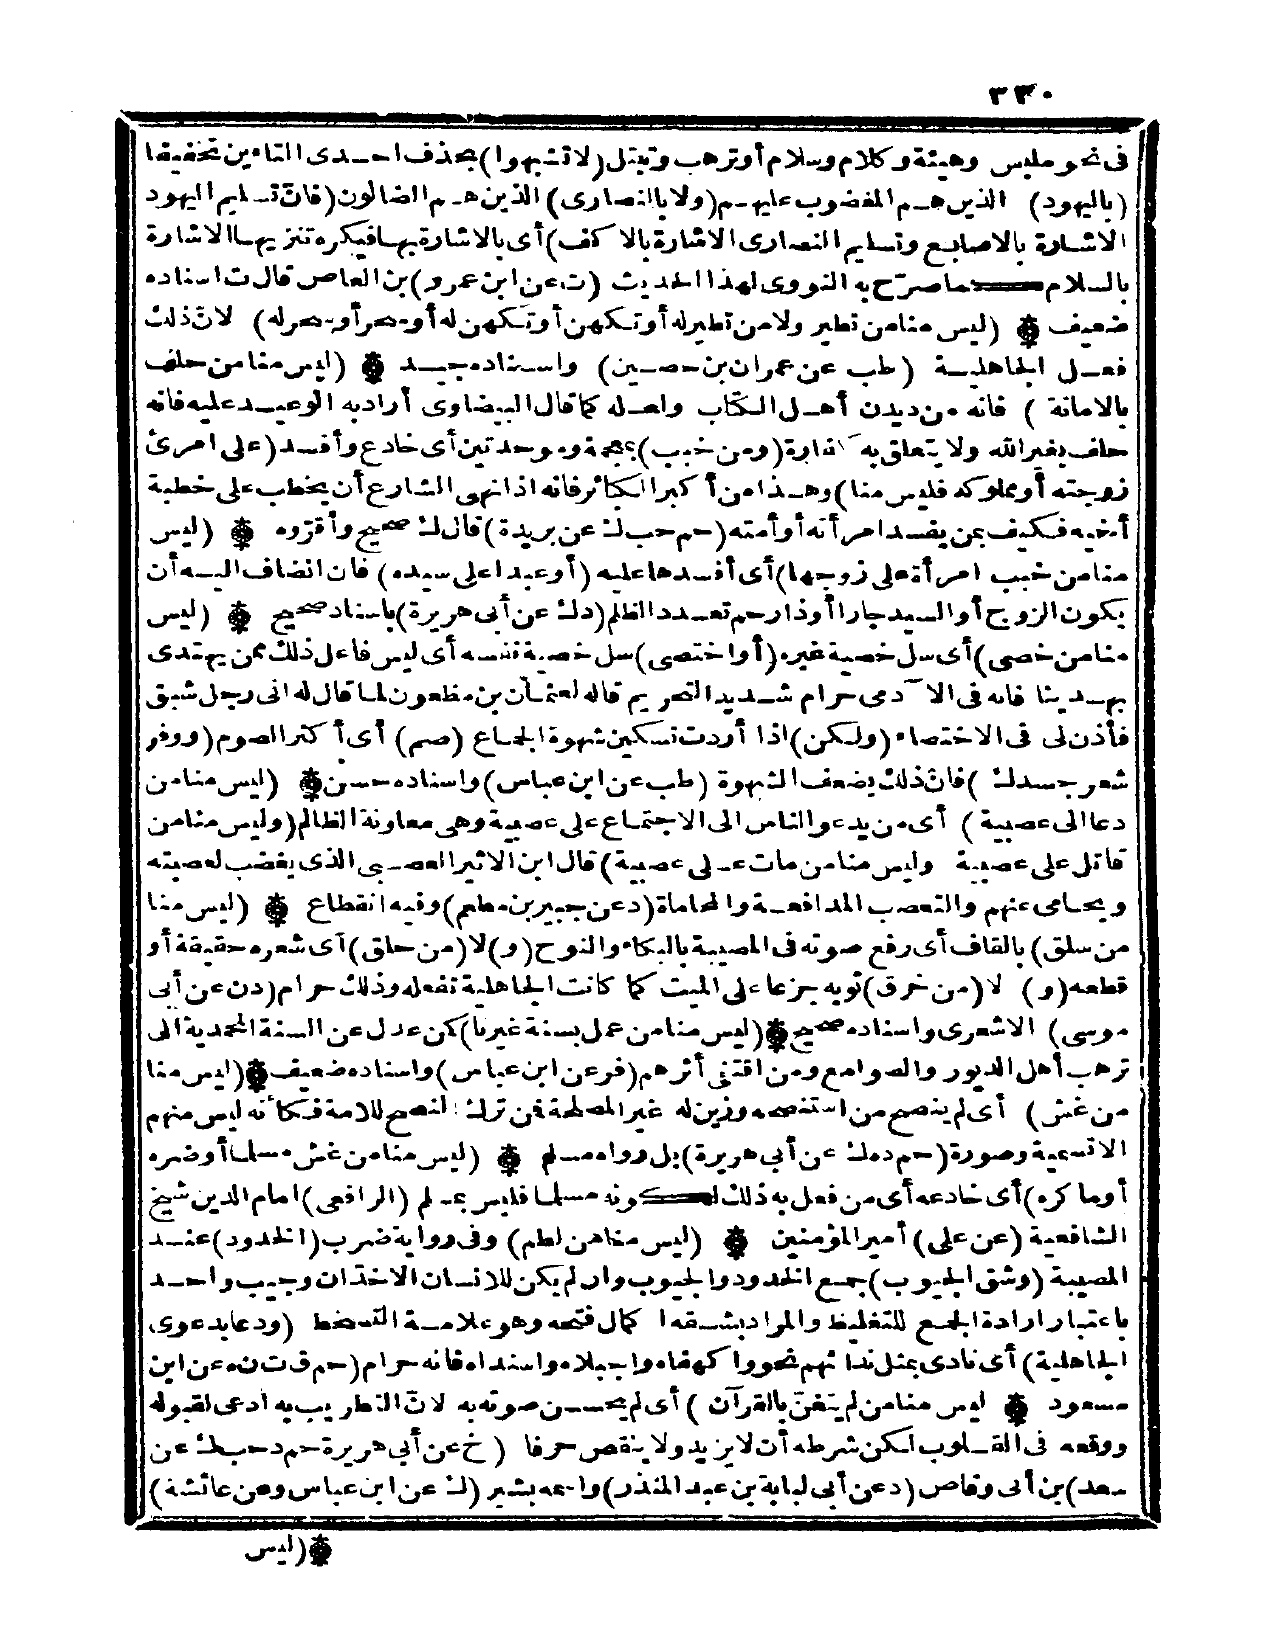 ٣٣٠
فى نحو ملبس وهيئة وكلام وسلام أو ترهب وتبتل (لا تشبهوا) بحذف احدى التاءين تخفيفا
(باليهود) الذين هم المغضوب عليهم (ولا بالنصارى) الذين هم الضالون (فان تسليم اليهود
الاشارة بالاصابع وتسليم النصارى الاشارة بالاكف) أى بالاشارة بها فيكره تنزيها الاشارة
بالسلام كما صرّح به النووى لهذا الحديث (ت عن ابن عمرو) بن العاص قال ت اسناده
ضعيف ۞ (ليس منا من تطير ولا من تطير له أو تكهن أو تكهن له أو سحر أو سحر له) لانّ ذلك
فعل الجاهلية (طب عن عمران بن حصين) واسناده جيد ۞ (ليس منا من حلف
بالامانة) فانه من ديدن أهل الكتاب ولعله كما قال البيضاوى أراد به الوعيد عليه فانه
حلف بغير الله ولا يتعلق به كفارة (ومن خبب) بمعجمة وموحدتين أى خادع وأفسد (على امرئ
زوجته أو مملوكه فليس منا) وهذا من أكبر الكبائر فانه اذا نهى الشارع أن يخطب على خطبة
أخيه فكيف بمن يفسد امرأته أو أمته (حم حب ك عن بريدة) قال ك صحيح وأقرّوه ۞ (ليس
منا من خبب امرأة على زوجها) أى أفسدها عليه (أو عبدا على سيده) فان انضاف اليه أن
يكون الزوج أو السيد جارا أو ذا رحم تعدد الظلم (د ك عن أبى هريرة) باسناد صحيح ۞ (ليس
منا من خصى) أى سل خصية غيره (أو اختصى) سل خصية نفسه أى ليس فاعل ذلك ممن يهتدى
بهدينا فانه فى الآدمى حرام شديد التحريم قاله لعثمان بن مظعون لما قال له انى رجل شبق
فأذن لى فى الاختصاء (ولكن) اذا أردت تسكين شهوة الجماع (صم) أى أكثر الصوم (ووفر
شعر جسدك) فانّ ذلك يضعف الشهوة (طب عن ابن عباس) واسناده حسن ۞ (ليس منا من
دعا الى عصبية) أى من يدعو الناس الى الاجتماع على عصبية وهى معاونة الظالم (وليس منا من
قاتل على عصبية وليس منا من مات على عصبية) قال ابن الاثير العصبى الذى يغضب لعصبته
ويحامى عنهم والتعصب المدافعة والمحاماة (د عن جبير بن مطعم) وفيه انقطاع ۞ (ليس منا
من سلق) بالقاف أى رفع صوته فى المصيبة بالبكاء والنوح (و) لا (من حلق) أى شعره حقيقة أو
قطعه (و) لا (من خرق) ثوبه جزعا على الميت كما كانت الجاهلية تفعله وذلك حرام (د ن عن أبى
موسى) الاشعرى واسناده صحيح ۞ (ليس منا من عمل بسنة غيرنا) كمن عدل عن السنة المحمدية الى
ترهب أهل الديور والصوامع ومن اقتفى أثرهم (فر عن ابن عباس) واسناده ضعيف ۞ (ليس منا
من غش) أى لم ينصح من استنصحه وزين له غير المصلحة فمن ترك النصح للامة فكأنه ليس منهم
الا تسمية وصورة (حم د ه ك عن أبى هريرة) بل رواه مسلم ۞ (ليس منا من غش مسلما أو ضره
أو ما كره) أى خادعه أى من فعل به ذلك لكونه مسلما فليس بمسلم (الرافعى) امام الدين شيخ
الشافعية (عن على) أمير المؤمنين ۞ (ليس منا من لطم) وفى رواية ضرب (الخدود) عند
المصيبة (وشق الجيوب) جمع الخدود والجيوب وان لم يكن للانسان الا خدان وجيب واحد
باعتبار ارادة الجمع للتغليظ والمراد بشقه اكمال فتحه وهو علامة التسخط (ودعا بدعوى
الجاهلية) أى نادى بمثل ندائهم نحو واكهفاه واجبلاه واسنداه فانه حرام (حم ق ت ن ه عن ابن
مسعود ۞ ليس منا من لم يتغنّ بالقرآن) أى لم يحسن صوته به لانّ التطريب به أدعى لقبوله
ووقعه فى القلوب لكن شرطه أن لا يزيد ولا ينقص حرفا (خ عن أبى هريرة حم د حب ك عن
سعد) بن أبى وقاص (د عن أبى لبابة بن عبد المنذر) واسمه بشير (ك عن ابن عباس وعن عائشة)
۞ (ليس